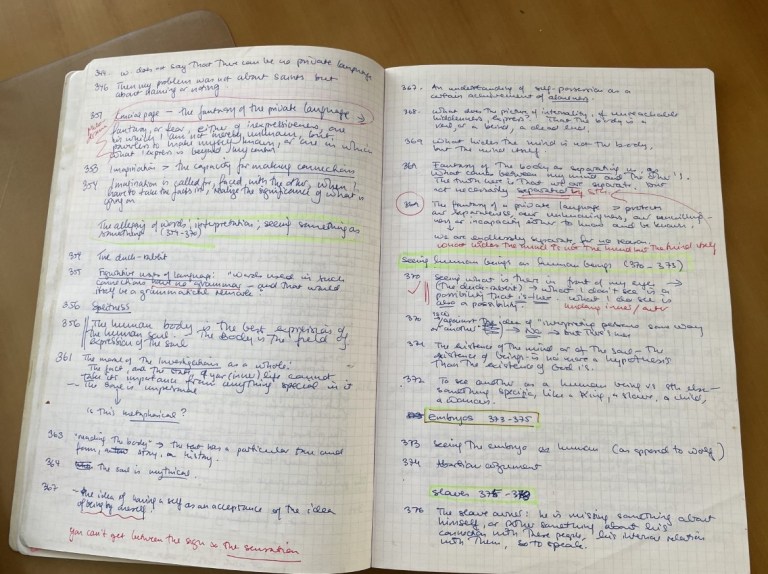 344. W does not say that there can be no private language
346 Then my problem was not about saints but
about daring or noting
351 Crucial page – the fantasy of the private language →
fantasy, or fear either of inexpressiveness, one
in which I am not merely unknown, but
powerless to make myself known, or one in which
what I express is beyond my control
353 Imagination → the capacity for making connections
354 Imagination is called for, faced with the other, when I
have to take the facts in, realize the significance of what is
going on
The allegory of words; interpretation; seeing something as
something (354-370)
354 The duck-rabbit
355 Figurative uses of language: "words used in such
connections have no grammar – and that would
itself be a grammatical remark"
356
356 The human body → the best expression of
the human soul – The body is the field of
expression of the soul
361 The moral of the Investigations as a whole:
The fact, and the state, of your (inner) life cannot
take its importance from anything special in it
– The range is impersonal
Is this metaphysical?
363 "reading the body" → the text has a particular tone and
form, a story, a history.
364 The soul is mythical
367 – the idea of having a self as an acceptance of the idea
of being by oneself.
you can't get between the sign and the sensation
367. An understanding of self-possession as a
certain achievement of aloneness.
368. What does the picture of internality, of unreachable
hiddenness, express? That the body is a
veil or a blind, a dead end.
369 What hides the mind is not the body,
but the mind itself
369 Fantasy of the body as separating us, as
what comes between my mind and the other's.
The truth here is that we are separate, but
not necessarily separated by sth.
369 The fantasy of a private language → protects
our separateness, our unknowingness, our unwilling-
ness or incapacity either to know and be known
↓
we are endlessly separate, for no reason
what hides the mind is not the mind but the mind itself
Seeing human beings as human beings (370-373)
370 Seeing what is there in front of my eyes →
(the duck-rabbit) → what I don't see is a
possibility that is there. What I do see is
also a possibility.
370 against the idea of "interpreting persons some way
or another" → No → but this is
371 The existence of the mind or of the soul – the
existence of beings – is no more a hypothesis
than the existence of God is.
372 To see another as a human being vs sth else –
something specific, like a king, a slave, a child,
a woman.
Embryos 373-375
373 Seeing the embryo as human (as opposed to wolf)
374 Abortion argument
Slaves 375 - 378
376 The slave owner: he is missing something about
himself, or rather something about his
connection with these people, his internal relation
with them, so to speak.